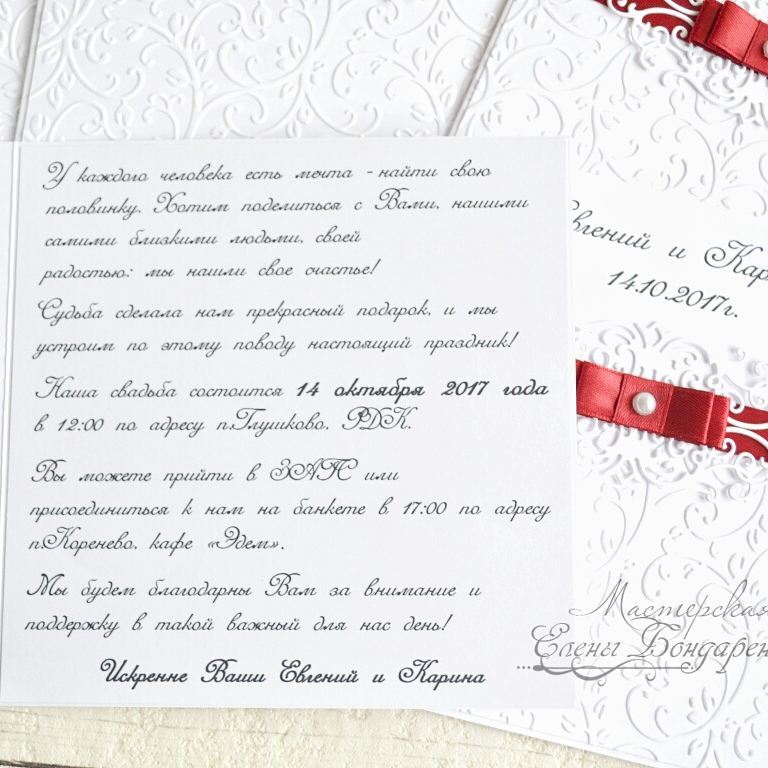 У каждого человека есть мечта - найти свою
половинку. Хотим поделиться с Вами, нашими
самими близкими людьми, своей
радостью: мы нашли свое счастье!
Судьба сделала нам прекрасный подарок, и мы
устроим по этому поводу настоящий праздник!
Наша свадьба состоится 14 октября 2017 года
в 12:00 по адресу п.Глушково, РДК.
Вы можете прийти в ЗАГС или
присоединиться к нам на банкете в 17:00 по адресу
п.Коренево, кафе «Эдем».
Мы будем благодарны Вам за внимание и
поддержку в такой важный для нас день!
Искренне Ваши Евгений и Карина
Евгений и Кар
14.10.2017г.
Мастерская
Елены Бондарен